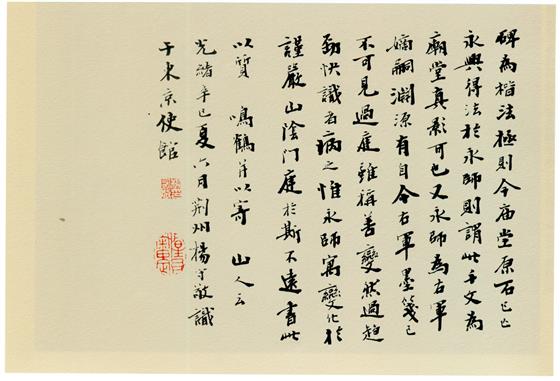 碑為楷法極則今庙堂原石已亡
永興得法於永師則謂此千文為
廟堂真影可也又永師為右軍
嫡嗣淵源有自今右軍墨箋已
不可見過庭雖稱善變然過趋
勁快識者病之惟永師寓變化於
謹嚴山陰門庭於斯不遠書此
以質 鳴鶴并以寄 山人云
光緒辛巳夏六月荆州楊守敬識
于東京使館